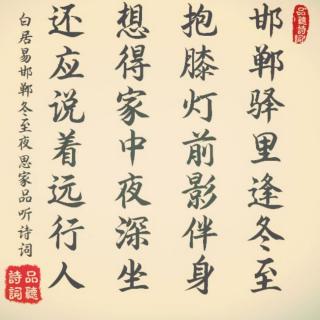 邯郸驿里逢冬至
抱膝灯前影伴身
想得家中夜深坐
还应说着远行人
白居易邯郸冬至夜思家品听诗词
品聽詩詞
品聽詩詞